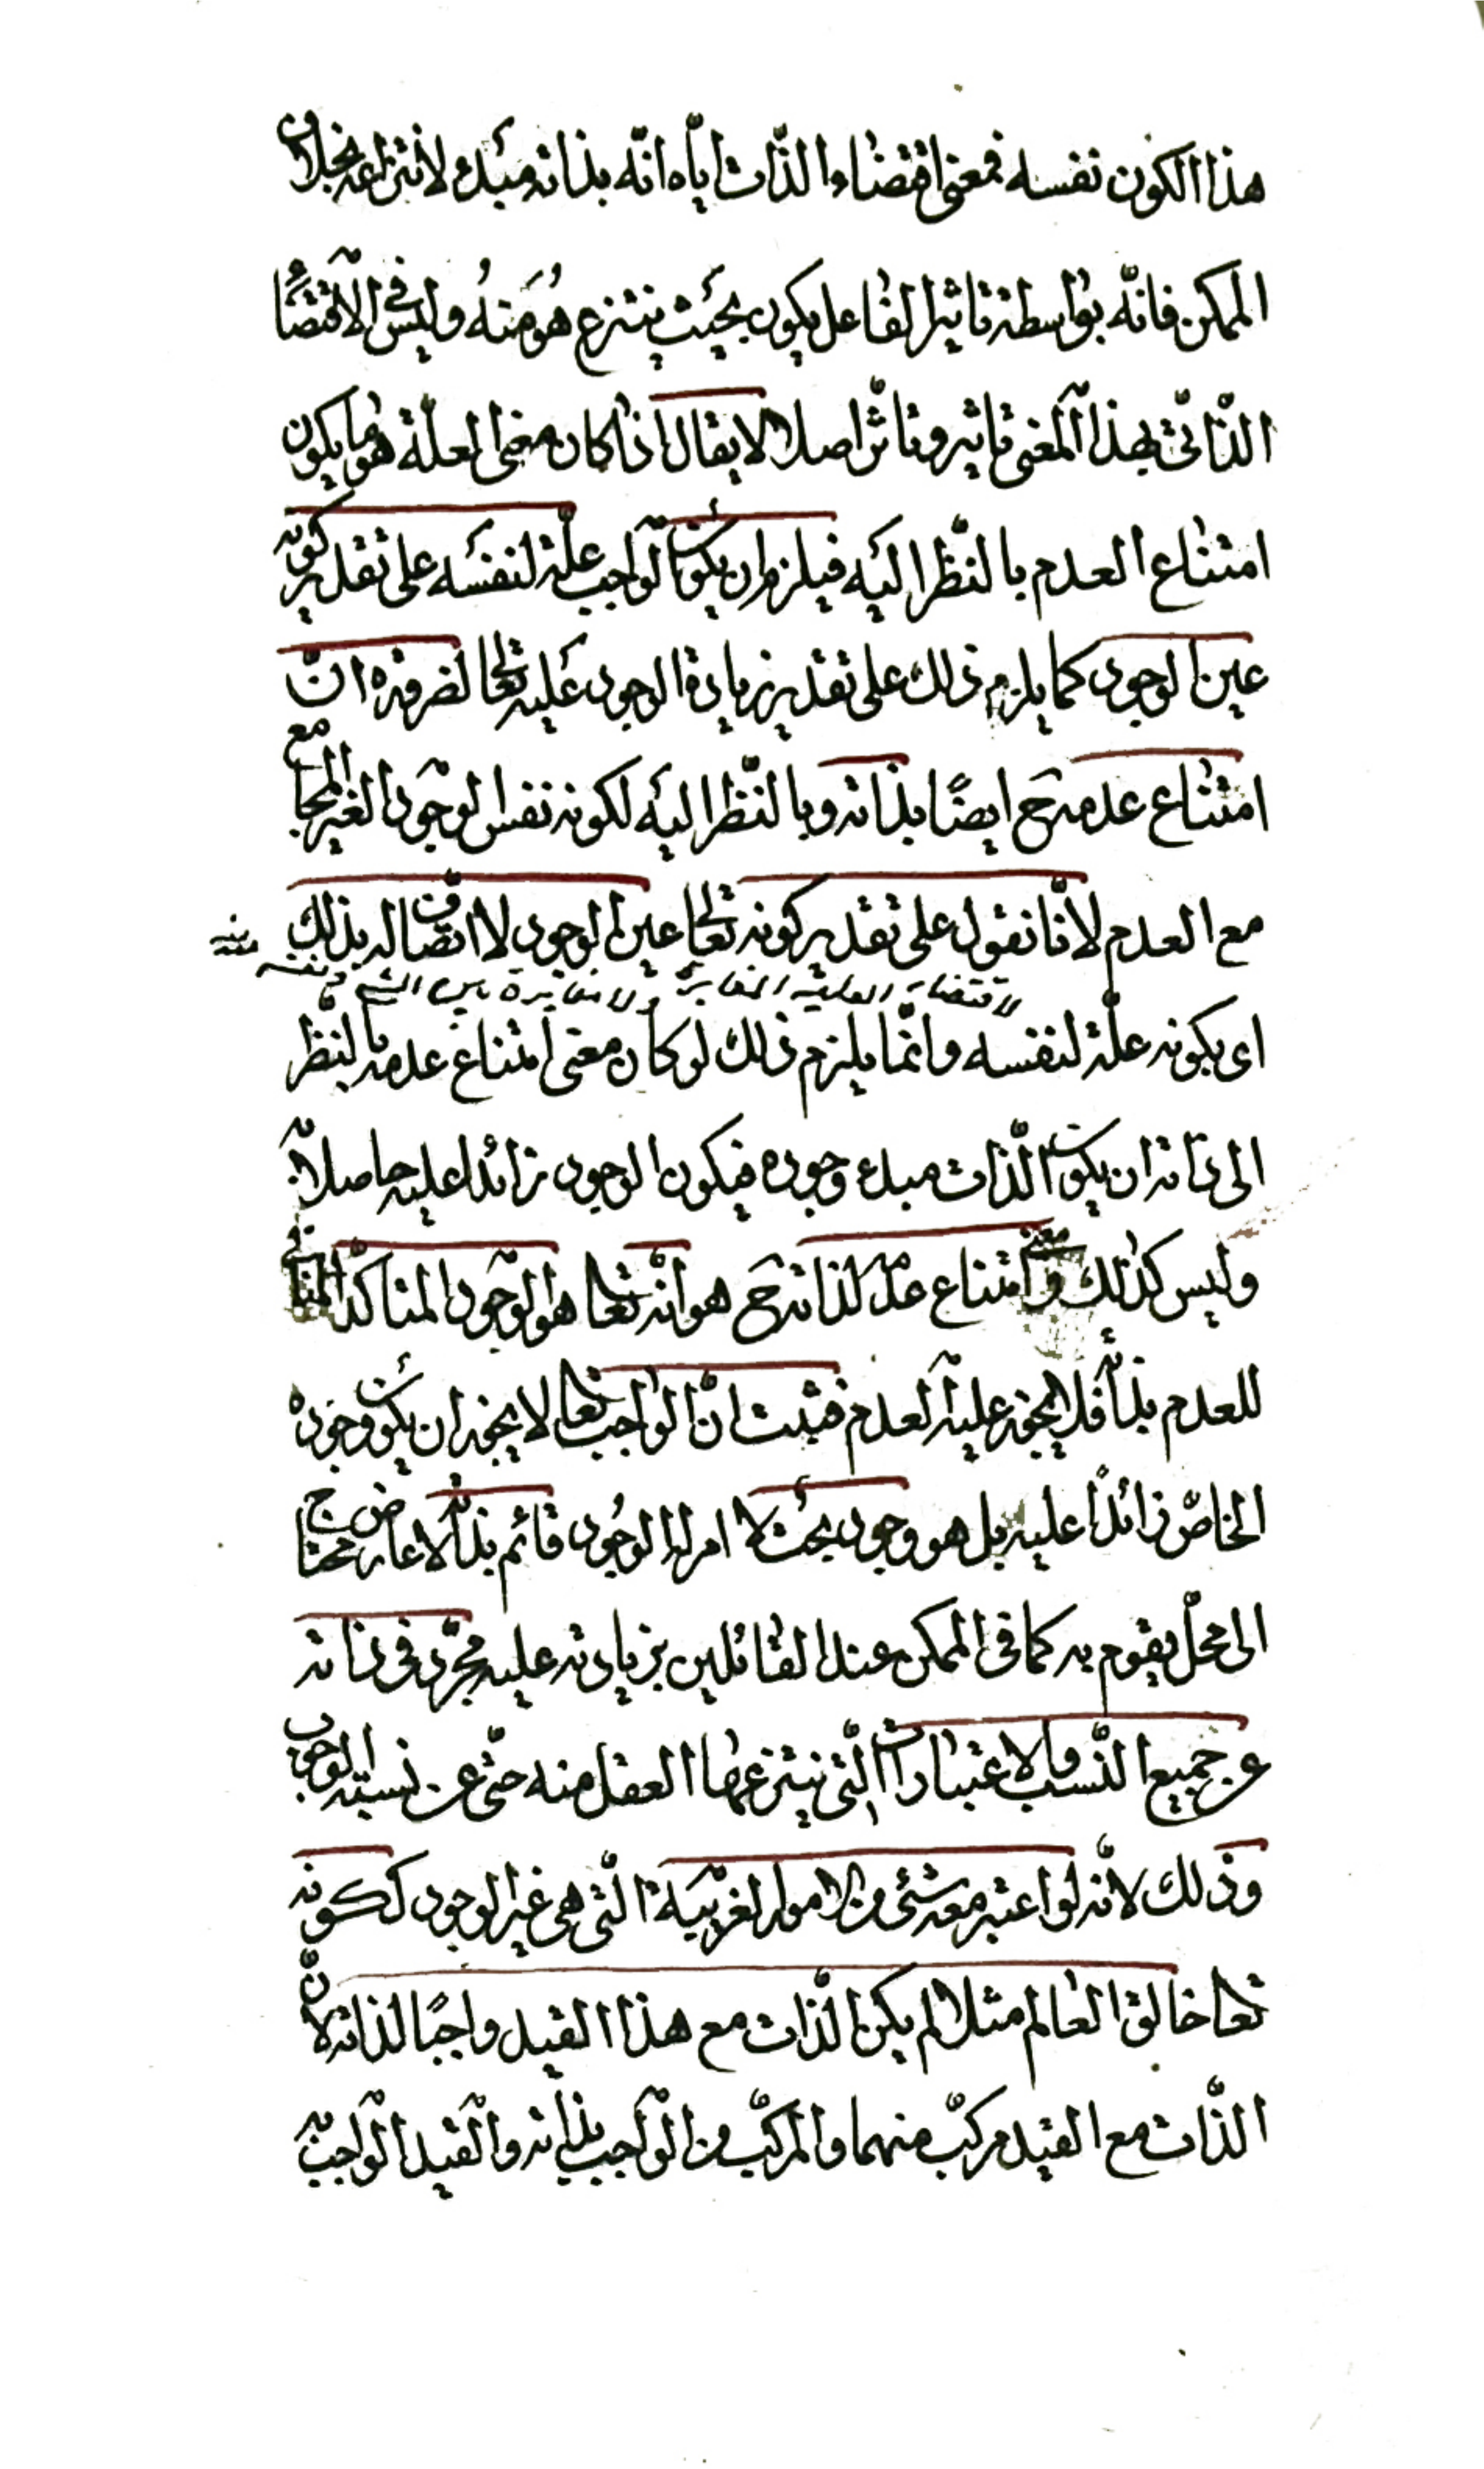 هذا الكون نفسه فمعنى اقتضاء الذّات ايّاه انّه بذاته مبدء لانتزاعه بخلاف
الممكن فانّه بواسطة تاثير الفاعل يكون بحيث ينتزع هو منه وليس في الاقتضاء
الذّاتىّ بهذا المعنى تاثير وتاثّر اصلا لا يقال اذا كان معنى العلّة هو ما يكون
امتناع العدم بالنّظر اليه فيلزم ان يكون الواجب علّة لنفسه على تقدير كونه
عين الوجود كما يلزم ذلك على تقدير زيادة الوجود عليه تعالى لضرورة انّ
امتناع عدمه ح ايضًا بذاته وبالنّظر اليه لكونه نفس الوجود الغير المجامع
مع العدم لانّا نقول على تقدير كونه تعالى عين الوجود لا اتّصاف له بذلك
لاقتضاء العلية المغايرة ولا مغايرة بين الشئ ونفسه منه
اى بكونه علّة لنفسه وانّما يلزم ذلك لو كان معنى امتناع عدمه بالنّظر
الى ذاته ان يكون الذّات مبدء وجوده فيكون الوجود زائدا عليه حاصلا به
وليس كذلك ومعنى امتناع عدمه لذاته ح هو انّه تعالى هو الوجود المتاكّد المنافى
للعدم بذاته فلا يجوز عليه العدم فثبت انّ الواجب تعالى لا يجوز ان يكون وجوده
الخاصّ زائدًا عليه بل هو وجود بحت لا امر له الوجود قائم بذاته لا عارض محتاج
الى محلّ يقوم به كما فى الممكن عند القائلين بزيادته عليه مجرّد فى ذاته
عن جميع النّسب والاعتبارات الّتى ينتزعها العقل منه حتّى عن نسبته الوجود
وذلك لانّه لو اعتبر معه شئ من الامور الغريبة الّتى هى غير الوجود ككونه
تعالى خالق العالم مثلا لم يكن الذّات مع هذا القيد واجبًا لذاته لانّ
الذّات مع القيد مركّب منهما والمركّب من الواجب بذاته والقيد الواجب به